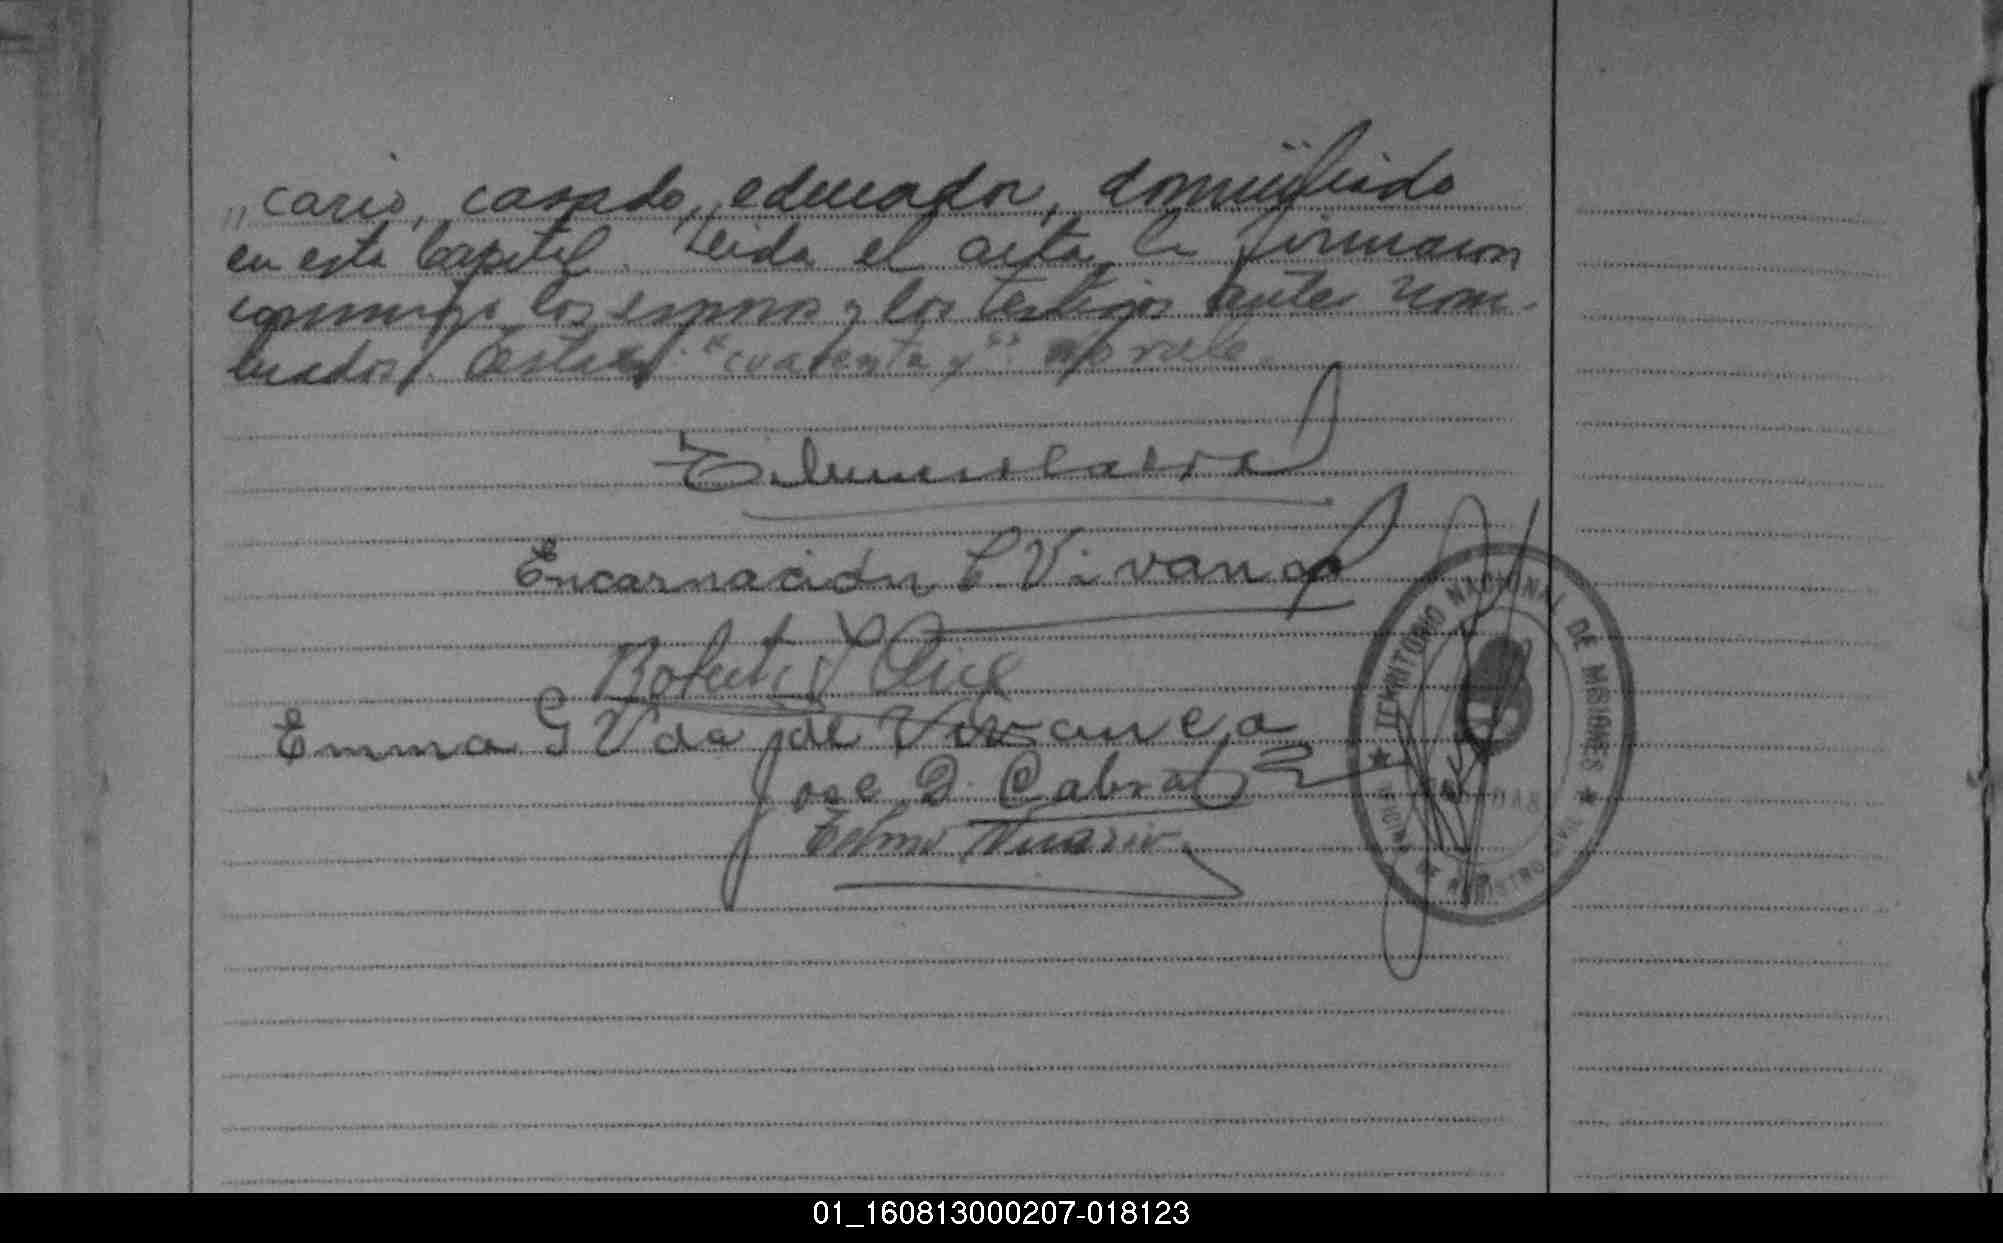 „cario, casado, educador, domiciliado
en esta Capital. Leida el acta, la firmaron
conmigo los esposos y los testigos antes nom-
brados. Testado: "cuarenta y": no vale.
Encarnación E Vivanco
Emma G Vda de Vivanco
José D. Cabral
Telmo
TERRITORIO NACIONAL DE MISIONES
OFICINA DE REGISTRO CIVIL
01_160813000207-018123